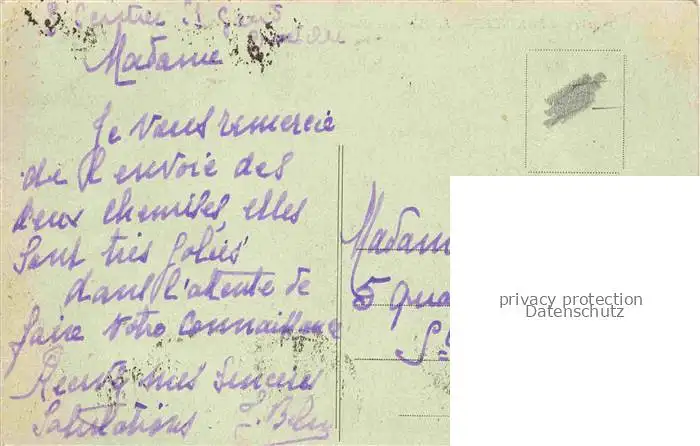 Madame
Je vous remercie
de l'envoie des
deux chemises, elles
sont très jolies
dans l'atente de
faire votre connaissance
Recevez mes sinceres
Salutations
Madame
5 Qua
privacy protection
Datenschutz